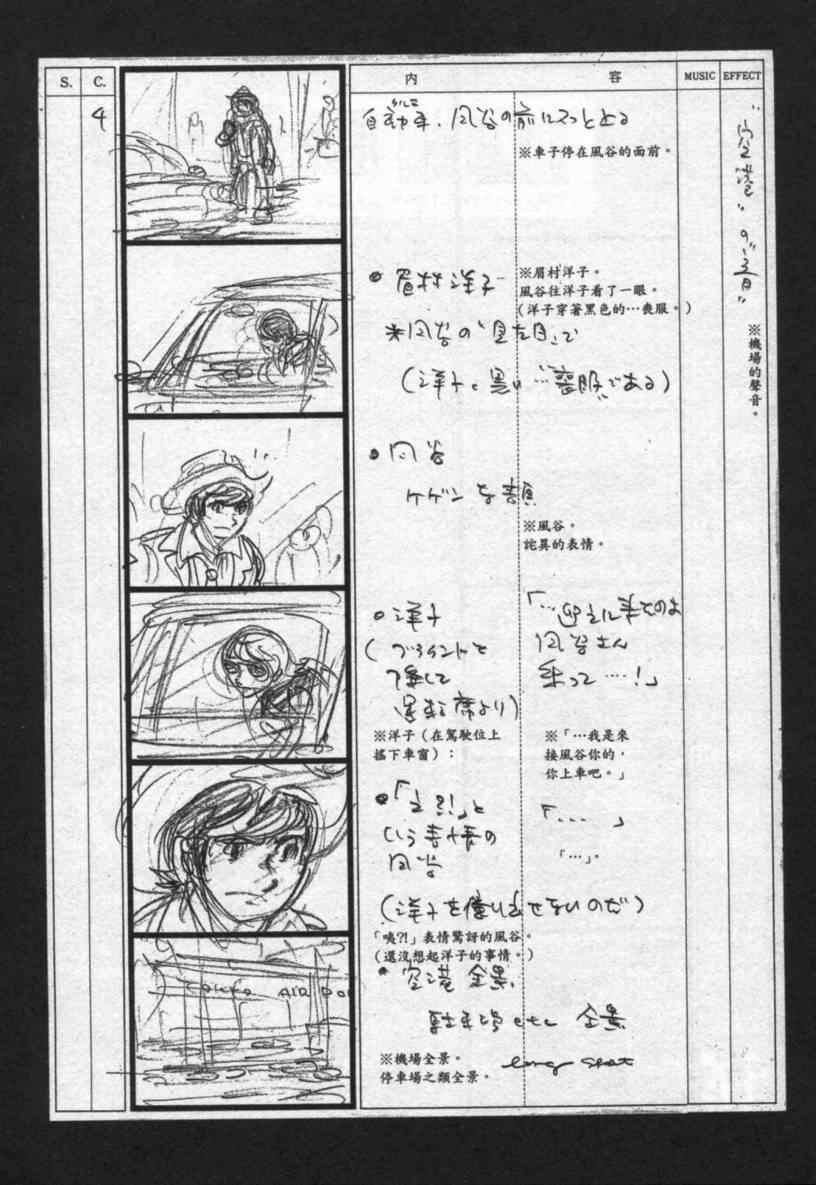 S.
C.
内
容
MUSIC
EFFECT
4
自動車、風谷の前にスッと止る
※車子停在風谷的面前。
"空港"の"音"
※機場的聲音。
●眉村洋子
※眉村洋子。
風谷往洋子看了一眼。
(洋子穿著黑色的…喪服。)
※風谷の「見た目」で
(洋子は黒い…"喪服"である)
●風谷
ケゲンな顔
※風谷。
詫異的表情。
●洋子
(ブラインドを
運転席より)
「…迎えに来たのよ
風谷さん
乗って…!」
※洋子(在駕駛位上
搖下車窗):
※「…我是來
接風谷你的,
你上車吧。」
●「え?!」と
いう表情の
風谷
「... 」
「…」。
(洋子を憶い出せないのだ)
「咦?!」表情驚訝的風谷。
(還沒想起洋子的事情。)
●空港 全景
駐車場 etc 全景
※機場全景。
停車場之類全景。
long shot
AIR POR